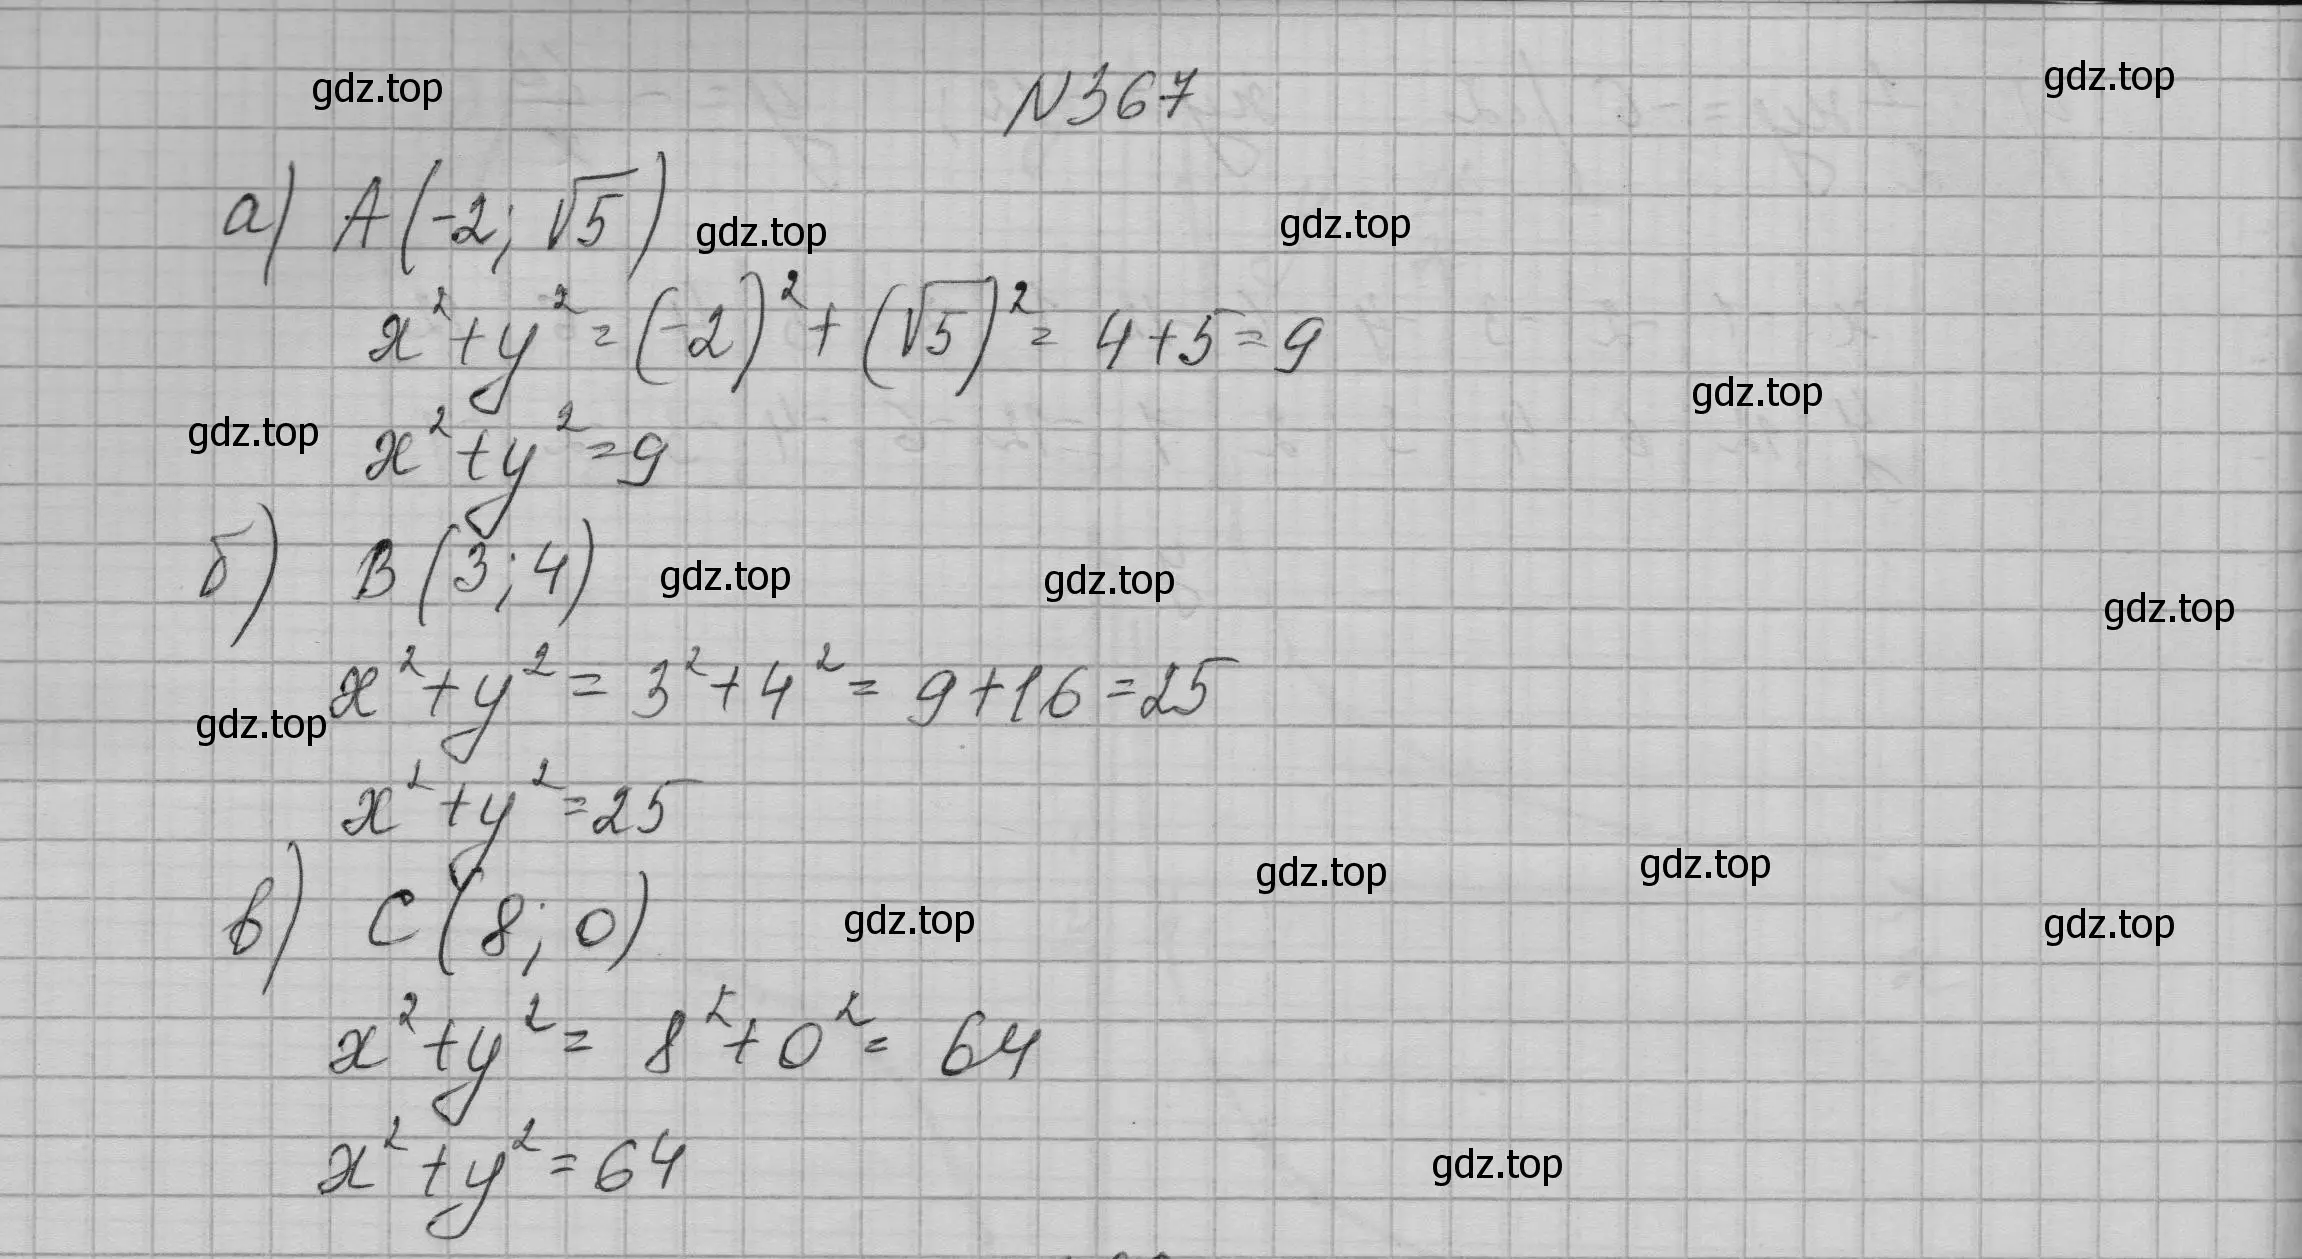 gdz.top N367 gdz.top
а) A(-2; √5) gdz.top gdz.top
x²+y²=(-2)²+(√5)²= 4+5=9
gdz.top x²+y²=9 gdz.top
б) B(3;4) gdz.top gdz.top gdz.top
x²+y²= 3²+4²= 9+16=25
gdz.top
x²+y²=25
gdz.top gdz.top
в) C(8; 0) gdz.top gdz.top
x²+y²= 8²+0²= 64
x²+y²=64 gdz.top